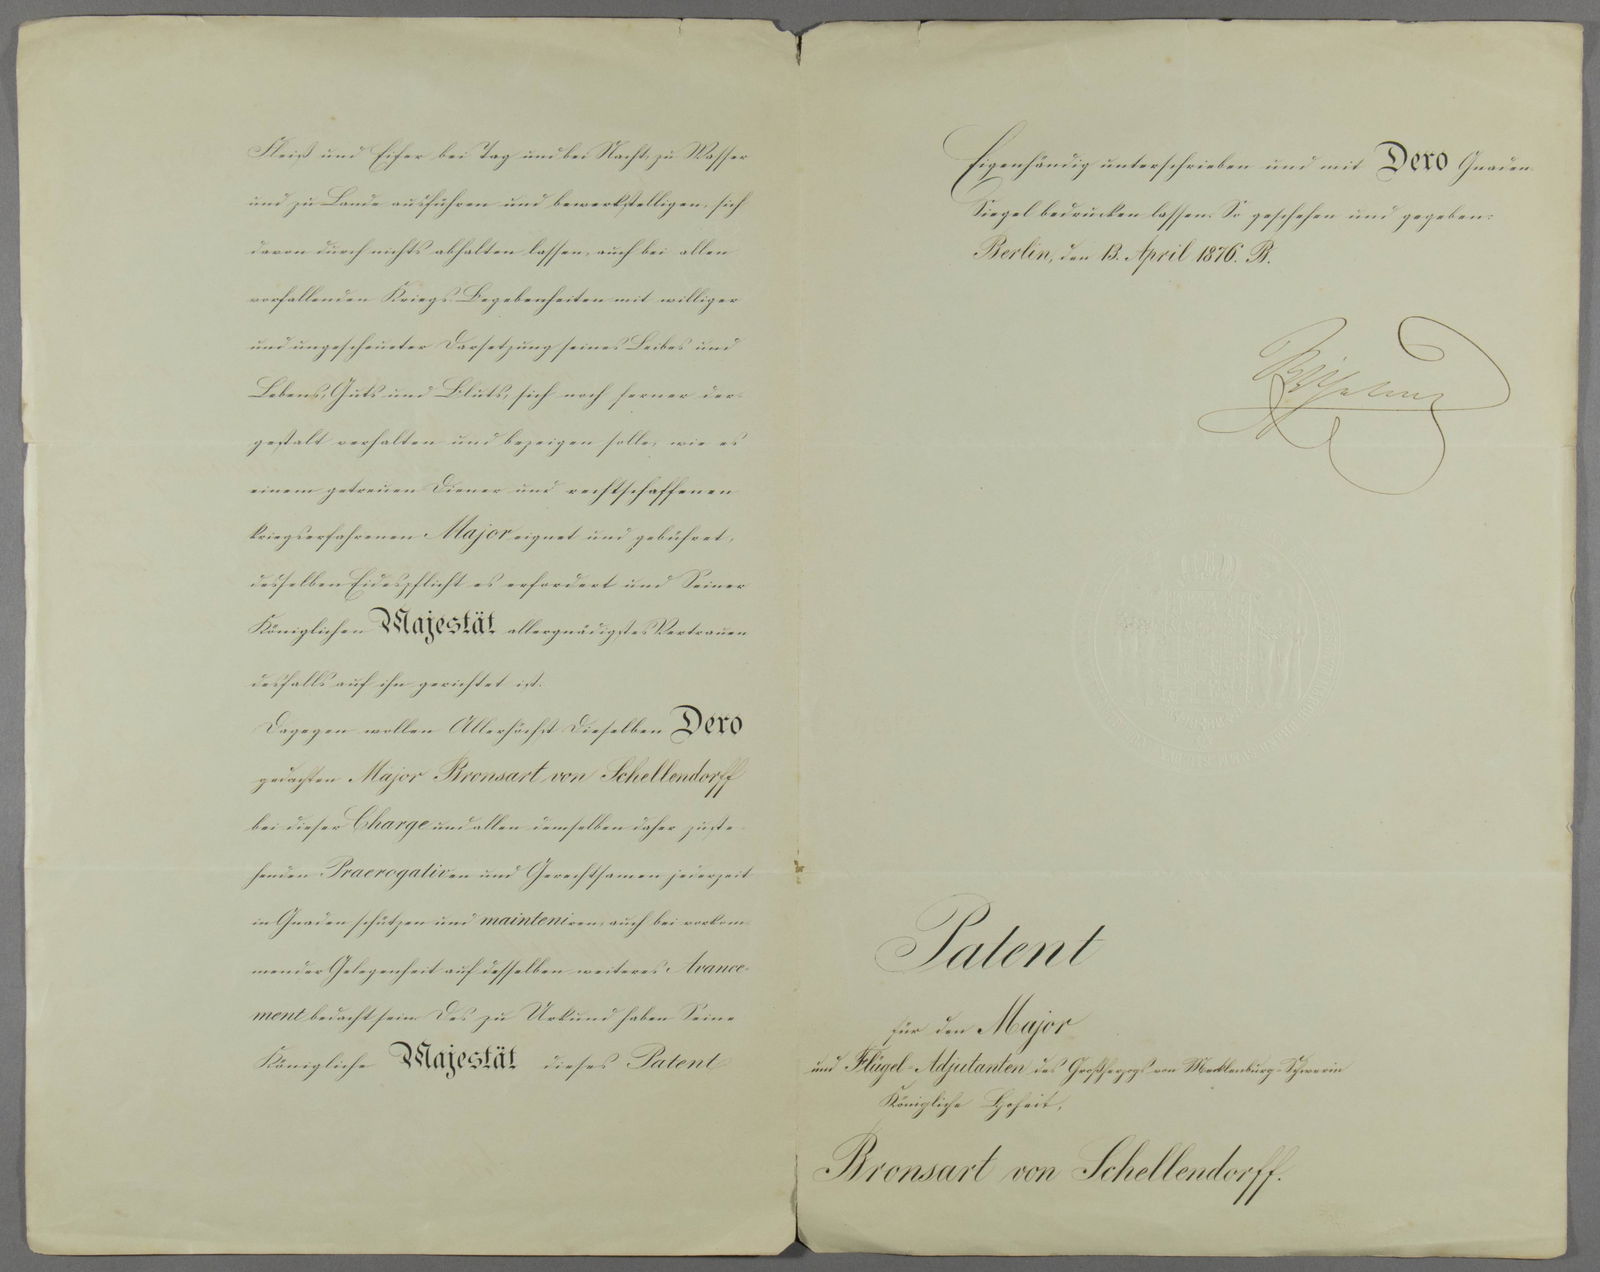 Fleiß und Eifer bei Tag und bei Nacht, zu Wasser
und zu Lande ausführen und bewerkstelligen, sich
davon durch nichts abhalten lassen, auch bei allen
vorfallenden Kriegs-Begebenheiten mit williger
und ungescheueter Darsetzung seines Leibes und
Lebens, Guts und Bluts, sich noch ferner der-
gestalt verhalten und bezeigen solle, wie es
einem getreuen Diener und rechtschaffenen
kriegserfahrenen Major eignet und gebühret,
desselben Eidespflicht es erfordert und Seiner
Königlichen Majestät allergnädigstes Vertrauen
desfalls auf ihn gerichtet ist.
Dagegen wollen Allerhöchst Dieselben Dero
gedachten Major Bronsart von Schellendorff
bei dieser Charge und allen demselben daher zuste-
henden Praerogativen und Gerechtsamen jederzeit
in Gnaden schützen und mainteniren, auch bei vorkom-
mender Gelegenheit auf desselben weiteres Avance-
ment bedacht sein. Des zu Urkund haben Seine
Königliche Majestät dieses Patent
Eigenhändig unterschrieben und mit Dero Gnaden-
Siegel bedrucken lassen. So geschehen und gegeben:
Berlin, den 13. April 1876. B.
Wilhelm
Patent
für den Major
und Flügel-Adjutanten des Großherzogs von Mecklenburg-Schwerin
Königliche Hoheit,
Bronsart von Schellendorff.